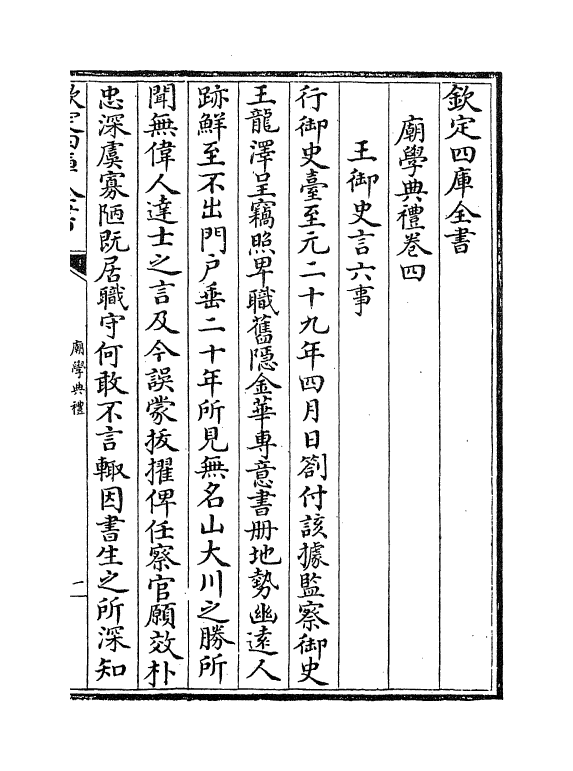 欽定四庫全書
廟學典禮卷四
王御史言六事
行御史臺至元二十九年四月日劄付該據監察御史
王龍澤呈竊照卑職舊隱金華專意書册地勢幽遠人
跡鮮至不出門戶垂二十年所見無名山大川之勝所
聞無偉人達士之言及今誤蒙拔擢俾任察官願效朴
忠深虞寡陋既居職守何敢不言輙因書生之所深知
廟學典禮